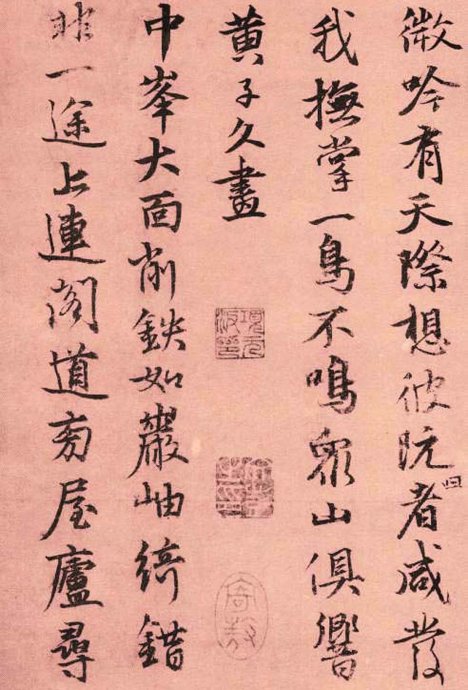 微吟有天際想彼阮者咸發
我撫掌一鳥不鳴眾山俱響
黄子久畫
項元汴印
中峯大面削鉄如巖岫綺錯
非一途上連閣道旁屋廬尋